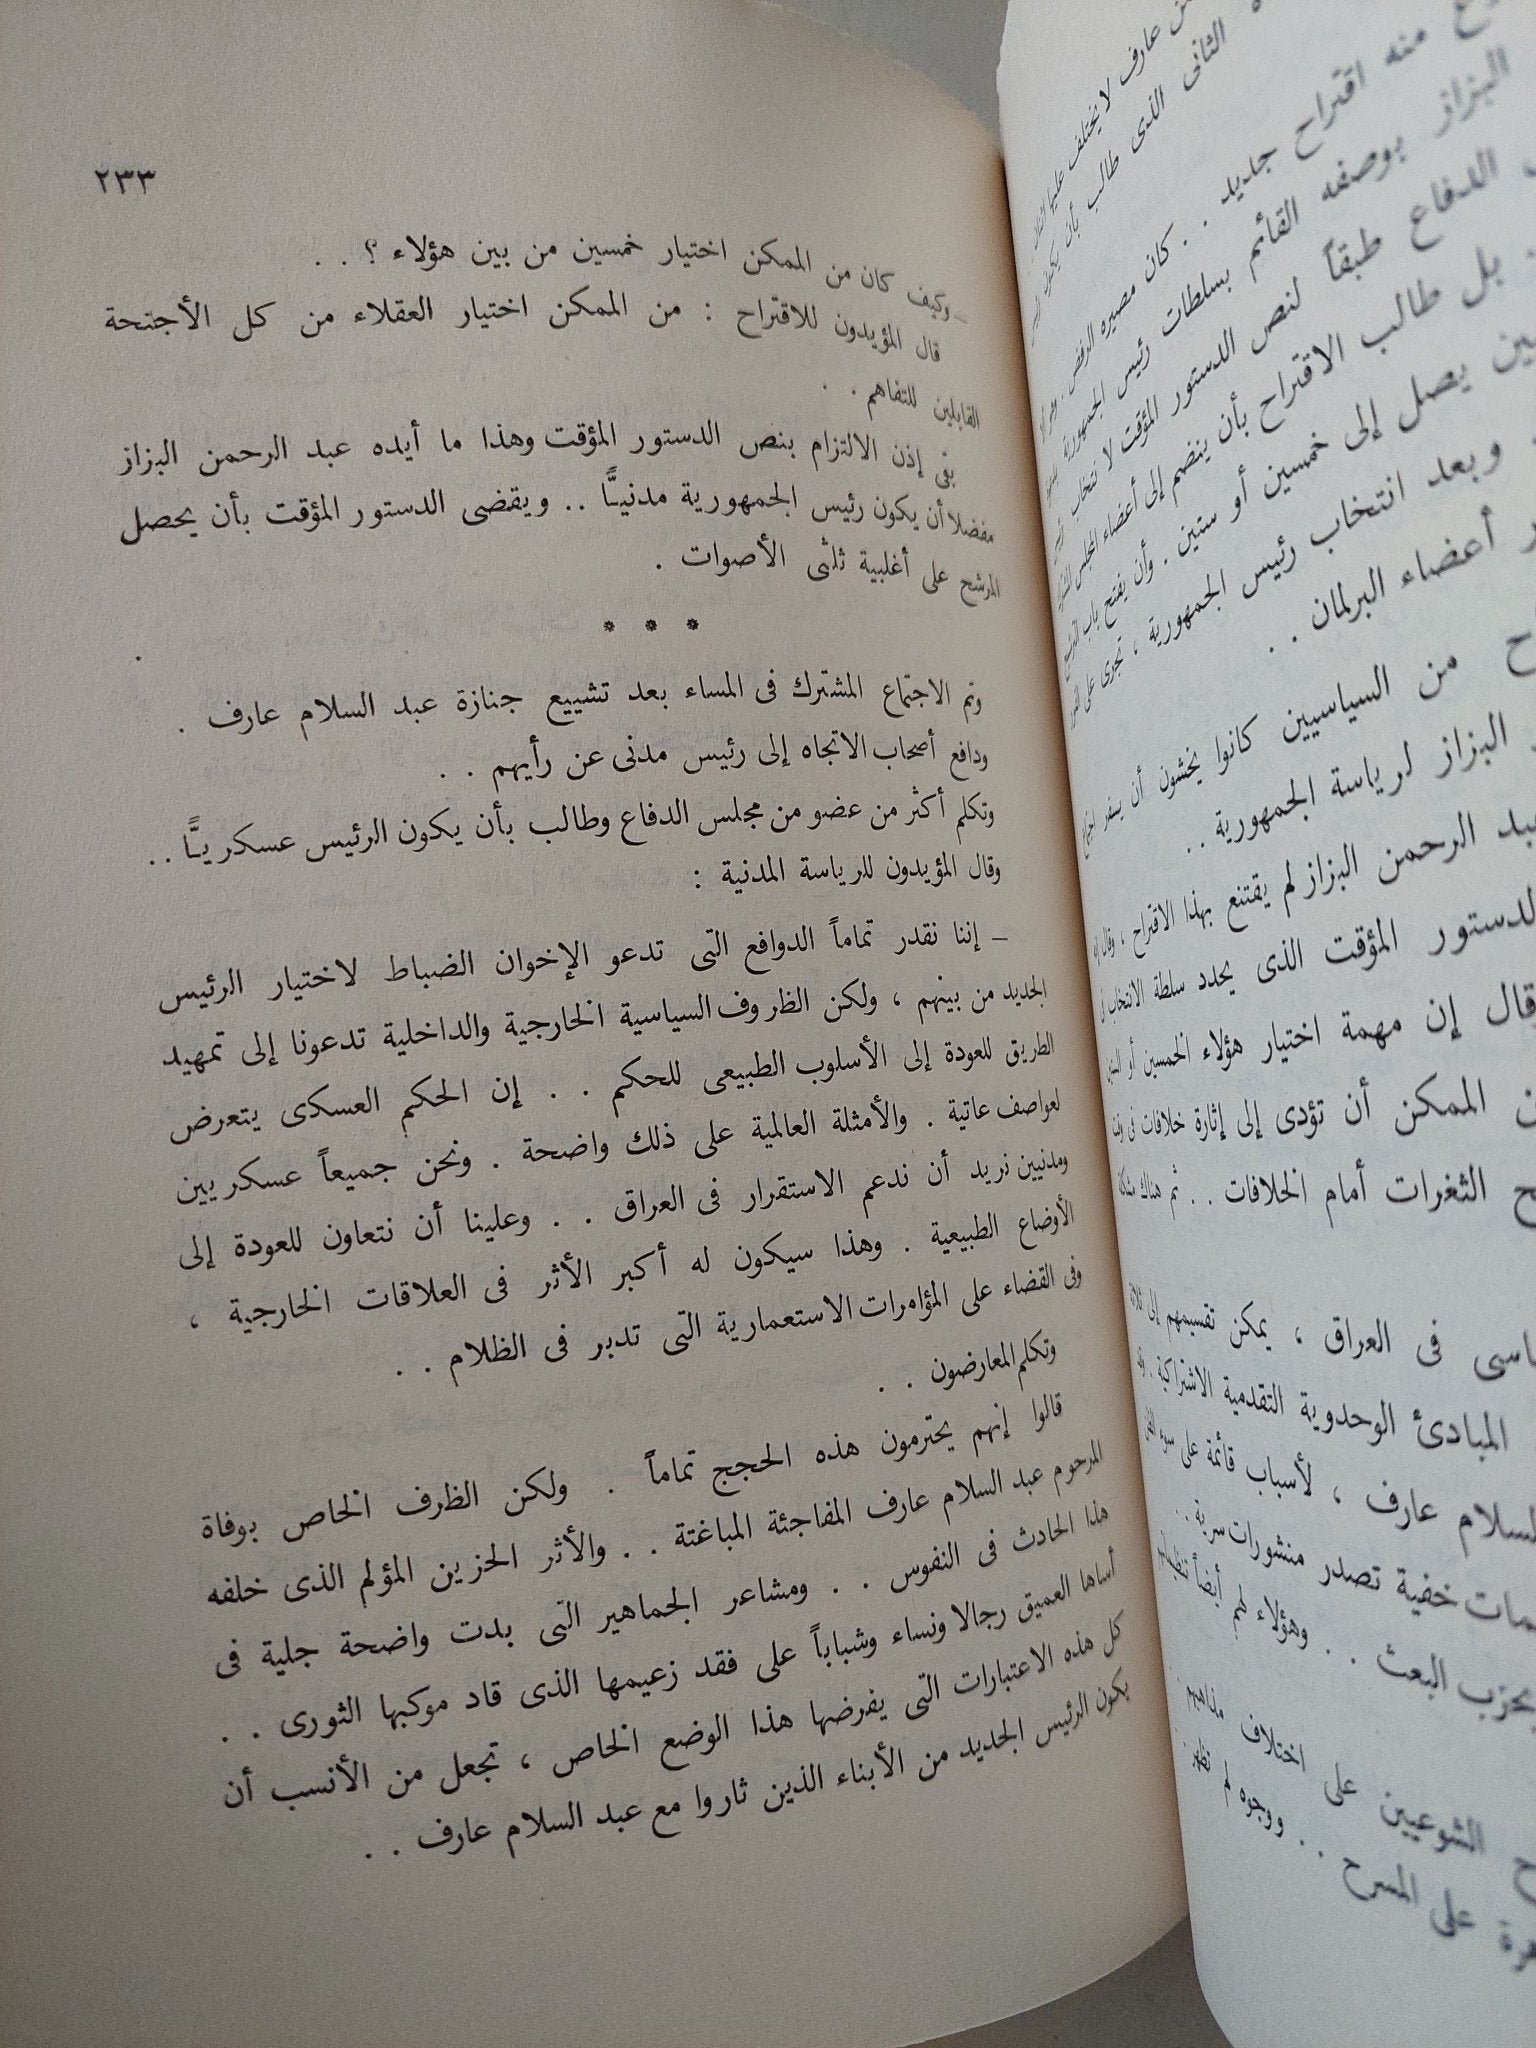 ٢٣٣
– وكيف كان من الممكن اختيار خمسين من بين هؤلاء ؟ . .
قال المؤيدون للاقتراح : من الممكن اختيار العقلاء من كل الأجنحة
القابلين للتفاهم . .
بقى إذن الالتزام بنص الدستور المؤقت وهذا ما أيده عبد الرحمن البزاز
مفضلا أن يكون رئيس الجمهورية مدنيًّا .. ويقضى الدستور المؤقت بأن يحصل
المرشح على أغلبية ثلثى الأصوات .
* * *
وتم الاجتماع المشترك فى المساء بعد تشييع جنازة عبد السلام عارف .
ودافع أصحاب الاتجاه إلى رئيس مدنى عن رأيهم . .
وتكلم أكثر من عضو من مجلس الدفاع وطالب بأن يكون الرئيس عسكريًّا . .
وقال المؤيدون للرياسة المدنية :
– إننا نقدر تماماً الدوافع التى تدعو الإخوان الضباط لاختيار الرئيس
الجديد من بينهم ، ولكن الظروف السياسية الخارجية والداخلية تدعونا إلى تمهيد
الطريق للعودة إلى الأسلوب الطبيعى للحكم . . إن الحكم العسكرى يتعرض
لعواصف عاتية . والأمثلة العالمية على ذلك واضحة . ونحن جميعاً عسكريين
ومدنيين نريد أن ندعم الاستقرار فى العراق . . وعلينا أن نتعاون للعودة إلى
الأوضاع الطبيعية . وهذا سيكون له أكبر الأثر فى العلاقات الخارجية ،
وفى القضاء على المؤامرات الاستعمارية التى تدبر فى الظلام . .
وتكلم المعارضون . .
قالوا إنهم يحترمون هذه الحجج تماماً . ولكن الظرف الخاص بوفاة
المرحوم عبد السلام عارف المفاجئة المباغتة . . والأثر الحزين المؤلم الذى خلفه
هذا الحادث فى النفوس . . ومشاعر الجماهير التى بدت واضحة جلية فى
أساها العميق رجالا ونساء وشباباً على فقد زعيمها الذى قاد موكبها الثورى . .
كل هذه الاعتبارات التى يفرضها هذا الوضع الخاص ، تجعل من الأنسب أن
يكون الرئيس الجديد من الأبناء الذين ثاروا مع عبد السلام عارف . .
عارف لا يختلف عليها
الثانى الذى طالب بأن يكون
منه اقتراح جديد . . كان مصيره الرفض .
البزاز بوصفه القائم بسلطات رئيس الجمهورية
الدفاع طبقاً لنص الدستور المؤقت لانتخاب
بل طالب الاقتراح بأن ينضم إلى أعضاء المجلس
يصل إلى خمسين أو ستين . وأن يفتح باب الترشيح
وبعد انتخاب رئيس الجمهورية ، تجرى على
أعضاء البرلمان . .
من السياسيين كانوا يخشون أن يسفر
البزاز لرياسة الجمهورية . .
الرحمن البزاز لم يقتنع بهذا الاقتراح ، وقال
الدستور المؤقت الذى يحدد سلطة الانتخاب
قال إن مهمة اختيار هؤلاء الخمسين أو
الممكن أن تؤدى إلى إثارة خلافات فى
الثغرات أمام الخلافات . . ثم هناك
فى العراق ، يمكن تقسيمهم إلى
المبادئ الوحدوية التقدمية الاشتراكية .
السلام عارف ، لأسباب قائمة على سوء
خفية تصدر منشورات سرية . .
البعث . . وهؤلاء لهم أيضاً
الشوعيين على اختلاف مذاهبهم
على المسرح . . ووجوه لم تظهر